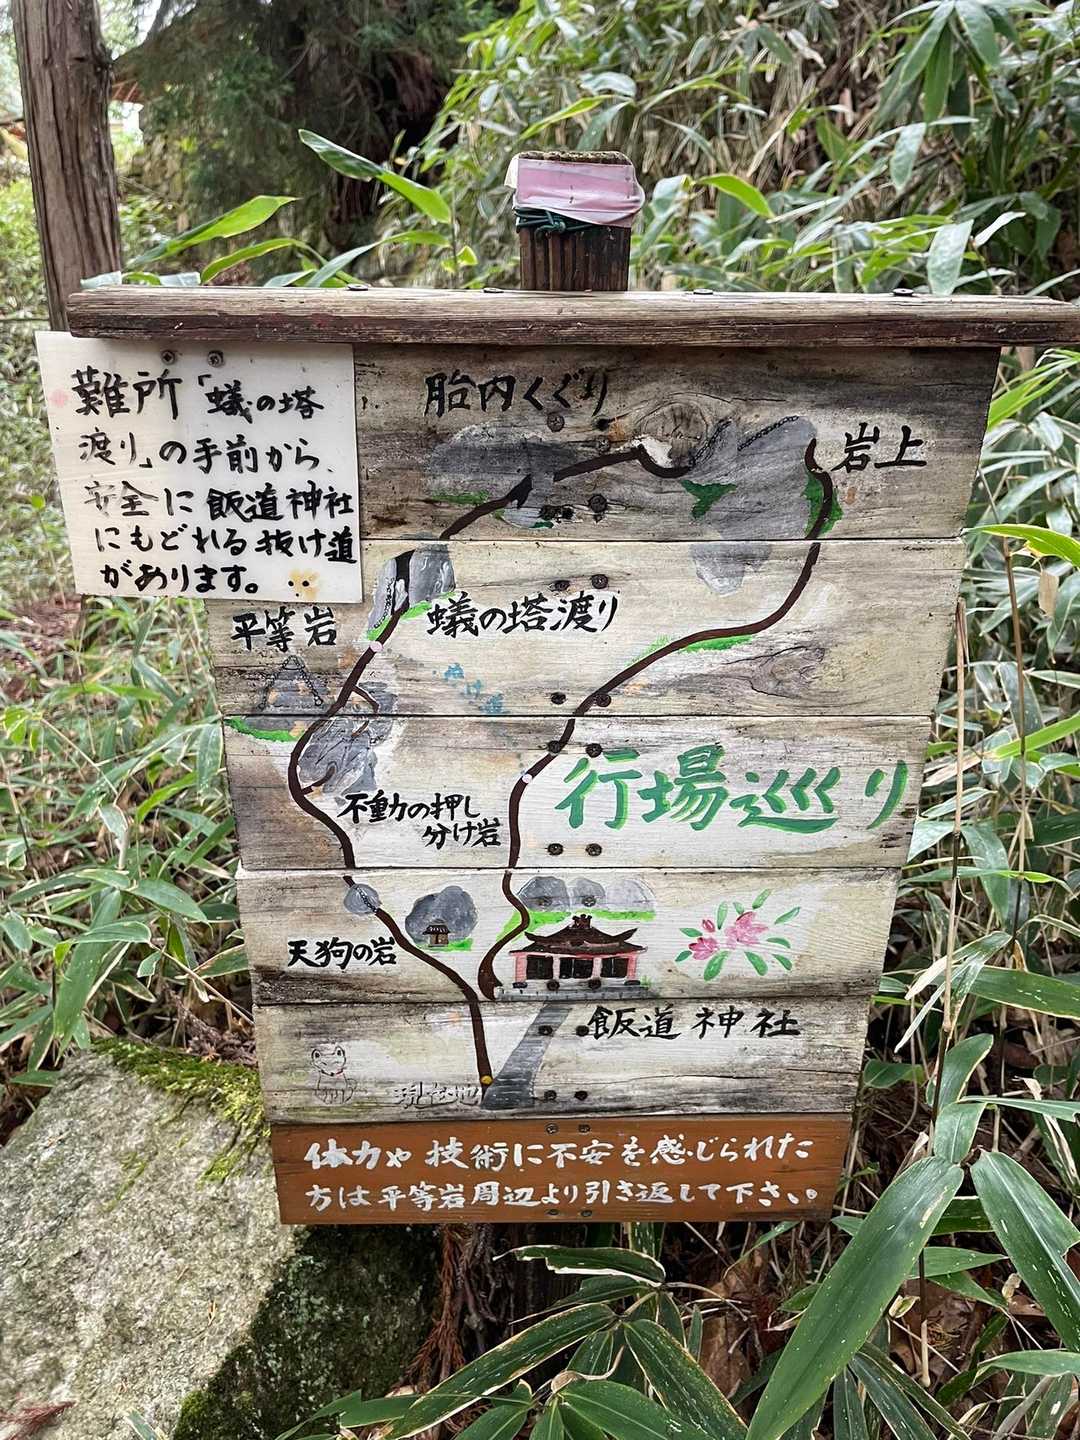 難所「蟻の塔
渡り」の手前から、
安全に飯道神社
にもどれる抜け道
があります。
胎内くぐり
岩上
平等岩
蟻の塔渡り
ぬけ道
行場巡り
不動の押し
分け岩
天狗の岩
飯道神社
現在地
体力や技術に不安を感じられた
方は平等岩周辺より引き返して下さい。